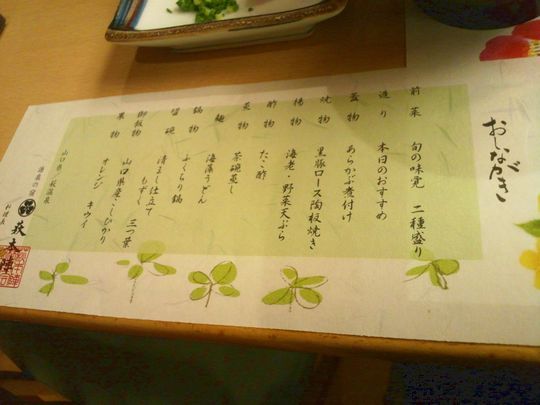 おしながき
前菜 旬の味覚 二種盛り
造り 本日のおすすめ
蓋物 あらかぶ煮付け
焼物 黒豚ロース陶板焼き
揚物 海老・野菜天ぷら
酢物 たこ酢
蒸物 茶碗蒸し
麺 海藻うどん
鍋物 ふくらり鍋
留碗 清まし仕立て
もずく 三つ葉
御飯物 山口県産こしひかり
果物 オレンジ キウイ
山口県・萩温泉
萩本陣
料理長